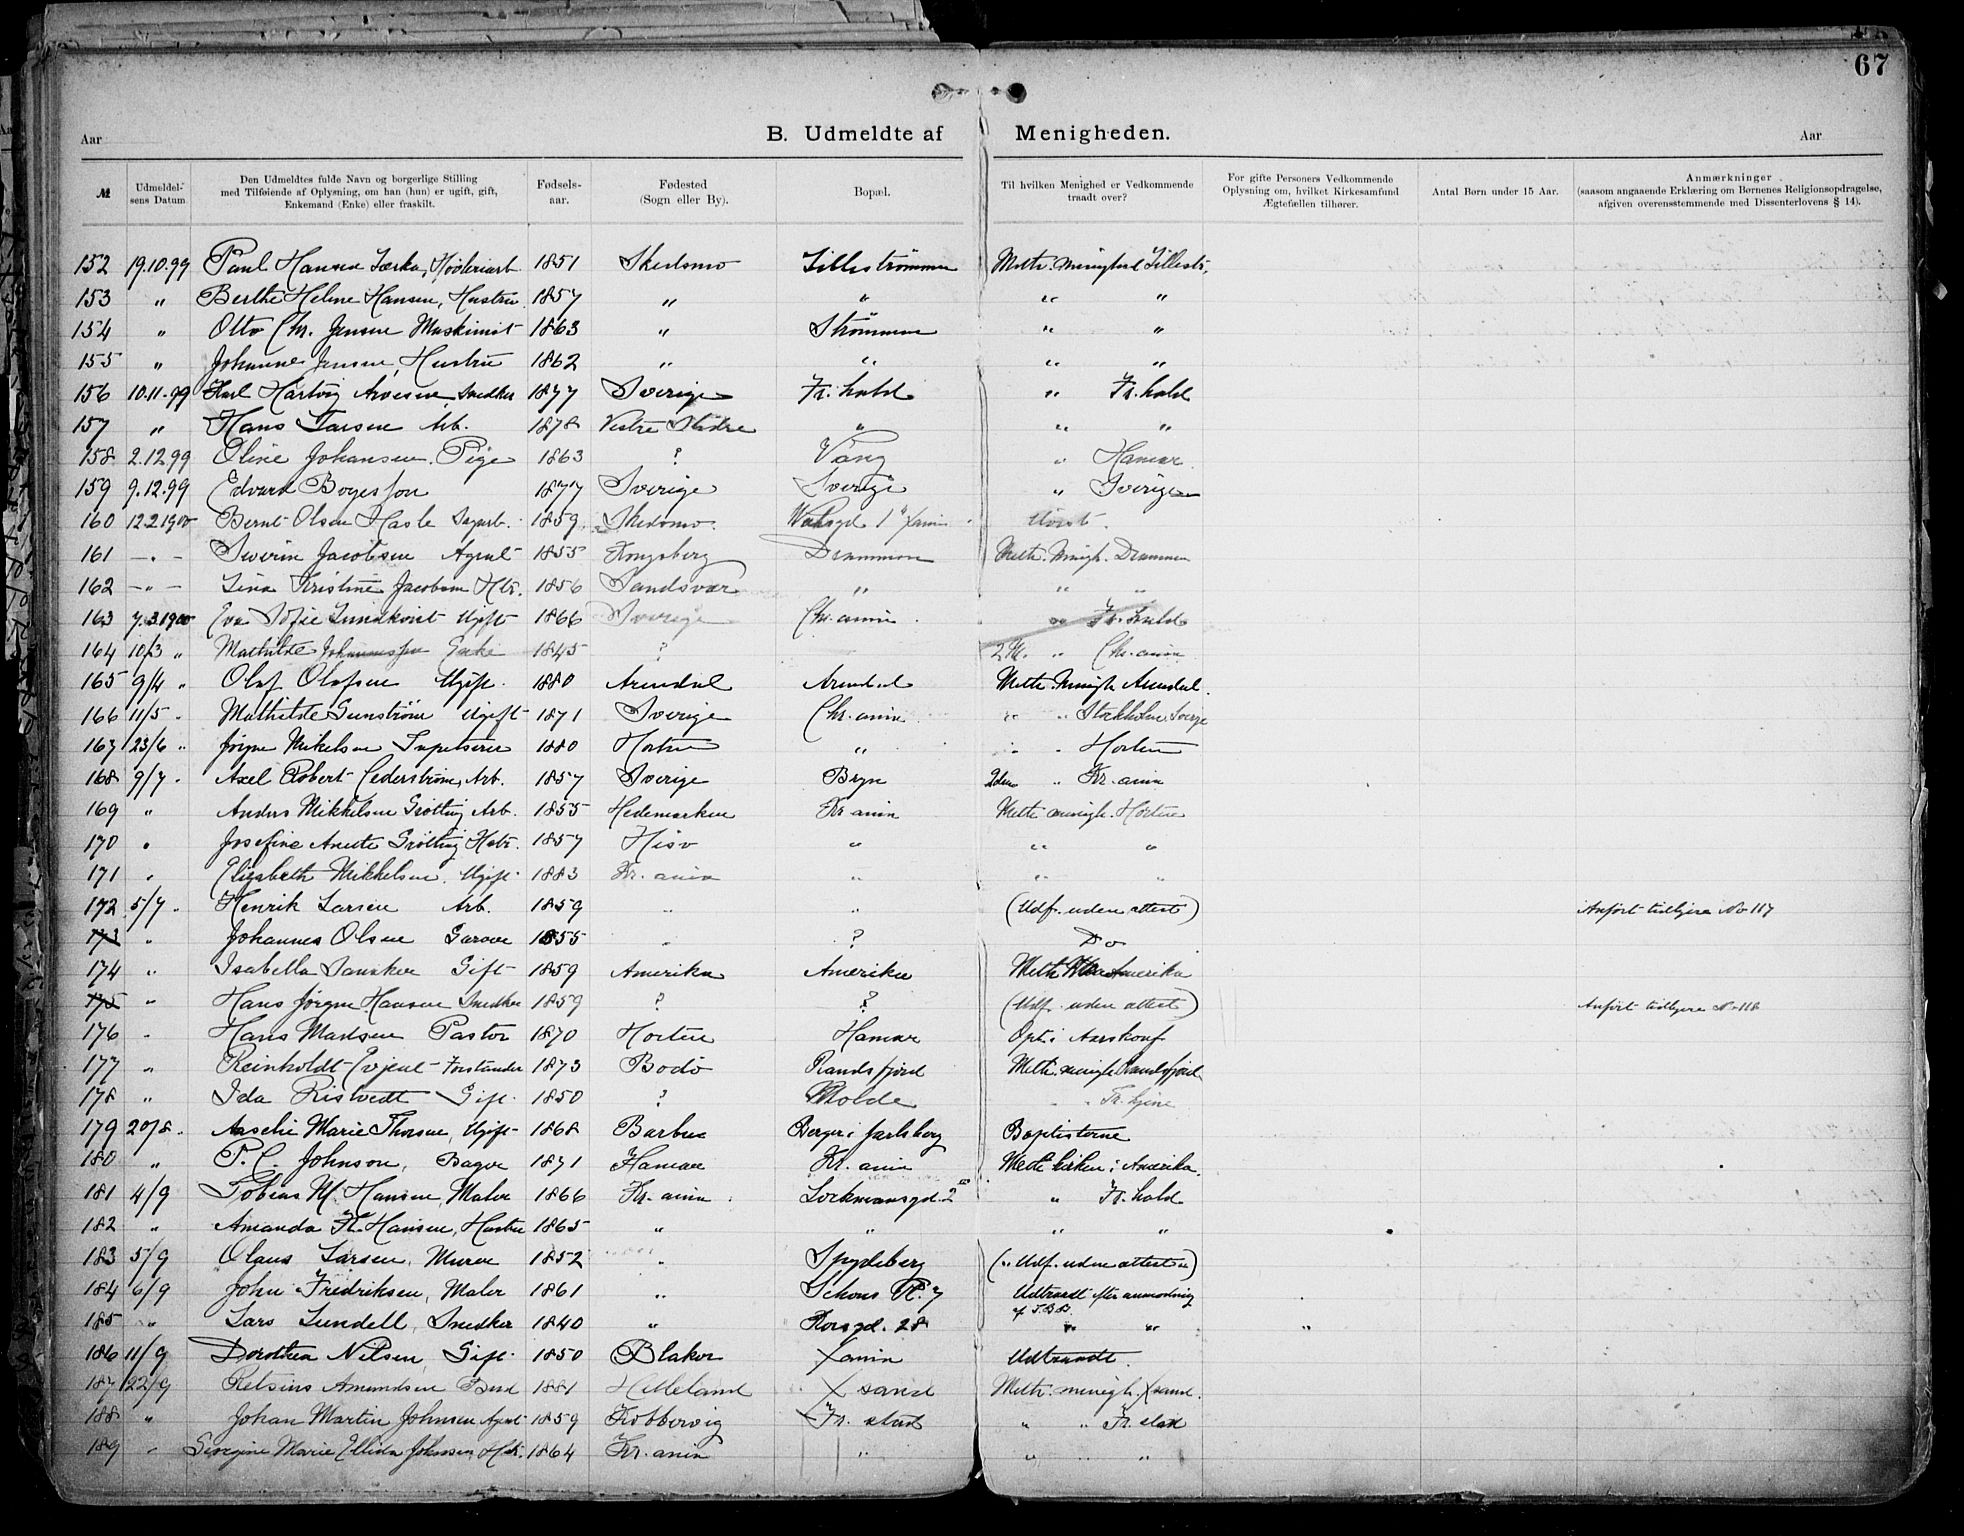 67
Aar B. Udmeldte af Menigheden. Aar
№ Udmeldelsens Datum Den Udmeldtes fulde Navn og borgerlige Stilling med Tilføiende af Oplysning, om han (hun) er ugift, gift, Enkemand (Enke) eller fraskilt. Fødselsaar. Fødested (Sogn eller By). Bopæl. Til hvilken Menighed er Vedkommende traadt over? For gifte Personers Vedkommende Oplysning om, hvilket Kirkesamfund Ægtefællen tilhører. Antal Børn under 15 Aar. Anmærkninger (saasom angaaende Erklæring om Børnenes Religionsopdragelse, afgiven overensstemmende med Dissenterlovens § 14).
152 19.10.99 Paul Hansen 1851 Skedsmo Lillestrømmen Meth. menighed Lillestr.
153 " Berthe Heline Hansen, Hustru 1857 " " " "
154 " Otto Chr. Jensen Maskinist 1863 " Strømmen " "
155 " Johanne Jensen, Hustru 1862 " " " "
156 10.11.99 Karl Hartvig Arvesen, Snedker 1877 Sverige Fr.hald " Fr.hald
157 " Hans Larsen Arb. 1878 Vestre Slidre " " "
158 2.12.99 Oline Johansen. Pige 1863 ? Vang " Hamar
159 9.12.99 Edvard 1877 Sverige Sverige " Sverige
160 12.2.1900 Bernt Olsen Hasle 1859 Skedsmo.
161 - " - Severin Jacobsen Agent 1855 Kongsberg Drammen Meth. Menigh. Drammen
162 - " - Lina Kristine Jacobsen Htr. 1856 Sandsvær " " "
163 7.3.1900 Eva Sofie Lundkvist Ugift 1866 Sverige Chr.ania " Fr.hald
164 10/3 " Mathilde Enke 1845 ? 2 M. " Chr.ania
165 9/4 " Olaf Olafsen Ugift 1880 Arendal Arendal Meth. Menigh Arendal.
166 11/5 " Mathilde Sunström Ugift 1871 Sverige Chr.ania " " Stockholm, Sverge
167 23/6 " Jørgen Mikelsen Tapetserer 1880 Horten " " " Horten
168 9/7 " Axel Robert Cederström, Arb. 1857 Sverige Bryn " Kr.ania
169 " Anders Mikkelsen Grøtting Arb. 1855 Hedemarken Kr.ania Meth menigh. Horten
170 " Josefine Grøtting Hstr. 1857 Hisø " " "
171 " Elisabeth Mikkelsen. Ugift 1883 Kr.ania " " "
172 5/7 " Henrik Larsen Arb. 1859 " " (Udf. uden attest) Anført tidligere No 117
173 " Johannes Olsen Garver 1855 " ? Do
174 " Isabella Gift 1859 Amerika Amerika Meth Amerika
175 " Hans Jørgen Hansen Snedker 1859 ? ? (Udf. uden attest) Anført tidligere No 118
176 " Hans Madsen Pastor 1870 Horten Hamar Opt. i Aarskonf
177 " Reinholdt Forstander 1873 Bodö Randsfjord Meth. menigh Randsfjord
178 " Ida Ristvedt Gift 1850 ? Molde " "
179 20/8 " Aaselie Marie Thorsen, Ugift 1868 Barbu Berger i Jarlsberg Baptisterne
180 " P. C. Johnson, Bager 1871 Hamar Kr.ania Meth kirken i Amerika.
181 4/9 Tobias M. Hansen, Maler 1866 Kr.ania Lockmansgd. 2 " Fr.hald
182 " Amanda Hansen, Hustru 1865 " " " "
183 5/9 Olaus Larsen, Murer 1852 " Spydeberg (" Udf. uden attest ")
184 6/9 John Fredriksen, Maler 1861 " Schous Pl. 7 Udtraadt efter anmodning
185 " Lars Lundell, Snedker 1840 " Korsgd. 28 " " "
186 11/9 Dorothea Nilsen, Gift 1850 Blaker Xania Udtraadt.
187 22/9 Amundsen 1881 Helleland Xsand Meth. menigh. Xsand.
188 " Johan Martin Johnsen Agent 1859 Fr.stad " " Fr.stad
189 " Marie Johnsen, Hstr. 1864 Kr.ania " " "